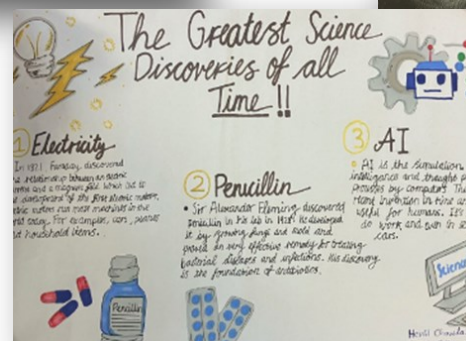 The Greatest Science
Discoveries of all
Time!!
1 Electricity
In 1821 Faraday discovered
relationship between an
and a magnetic field. Which led to
development of the first electric motor.
motors run most machines in the
today. For example, fans,
household items.
2 Penicillin
• Sir Alexander Fleming discovered
penicillin in his lab in 1928. He developed
it by growing fungi and mold and
proved an very effective remedy for treating
bacterial diseases and infections. His discovery
is the foundation of antibiotics.
3 AI
• AI is the simulation
intelligence and thought
by computers. This
recent invention in time
useful for humans. It's
do work and even in
cars.
Penicillin
Science